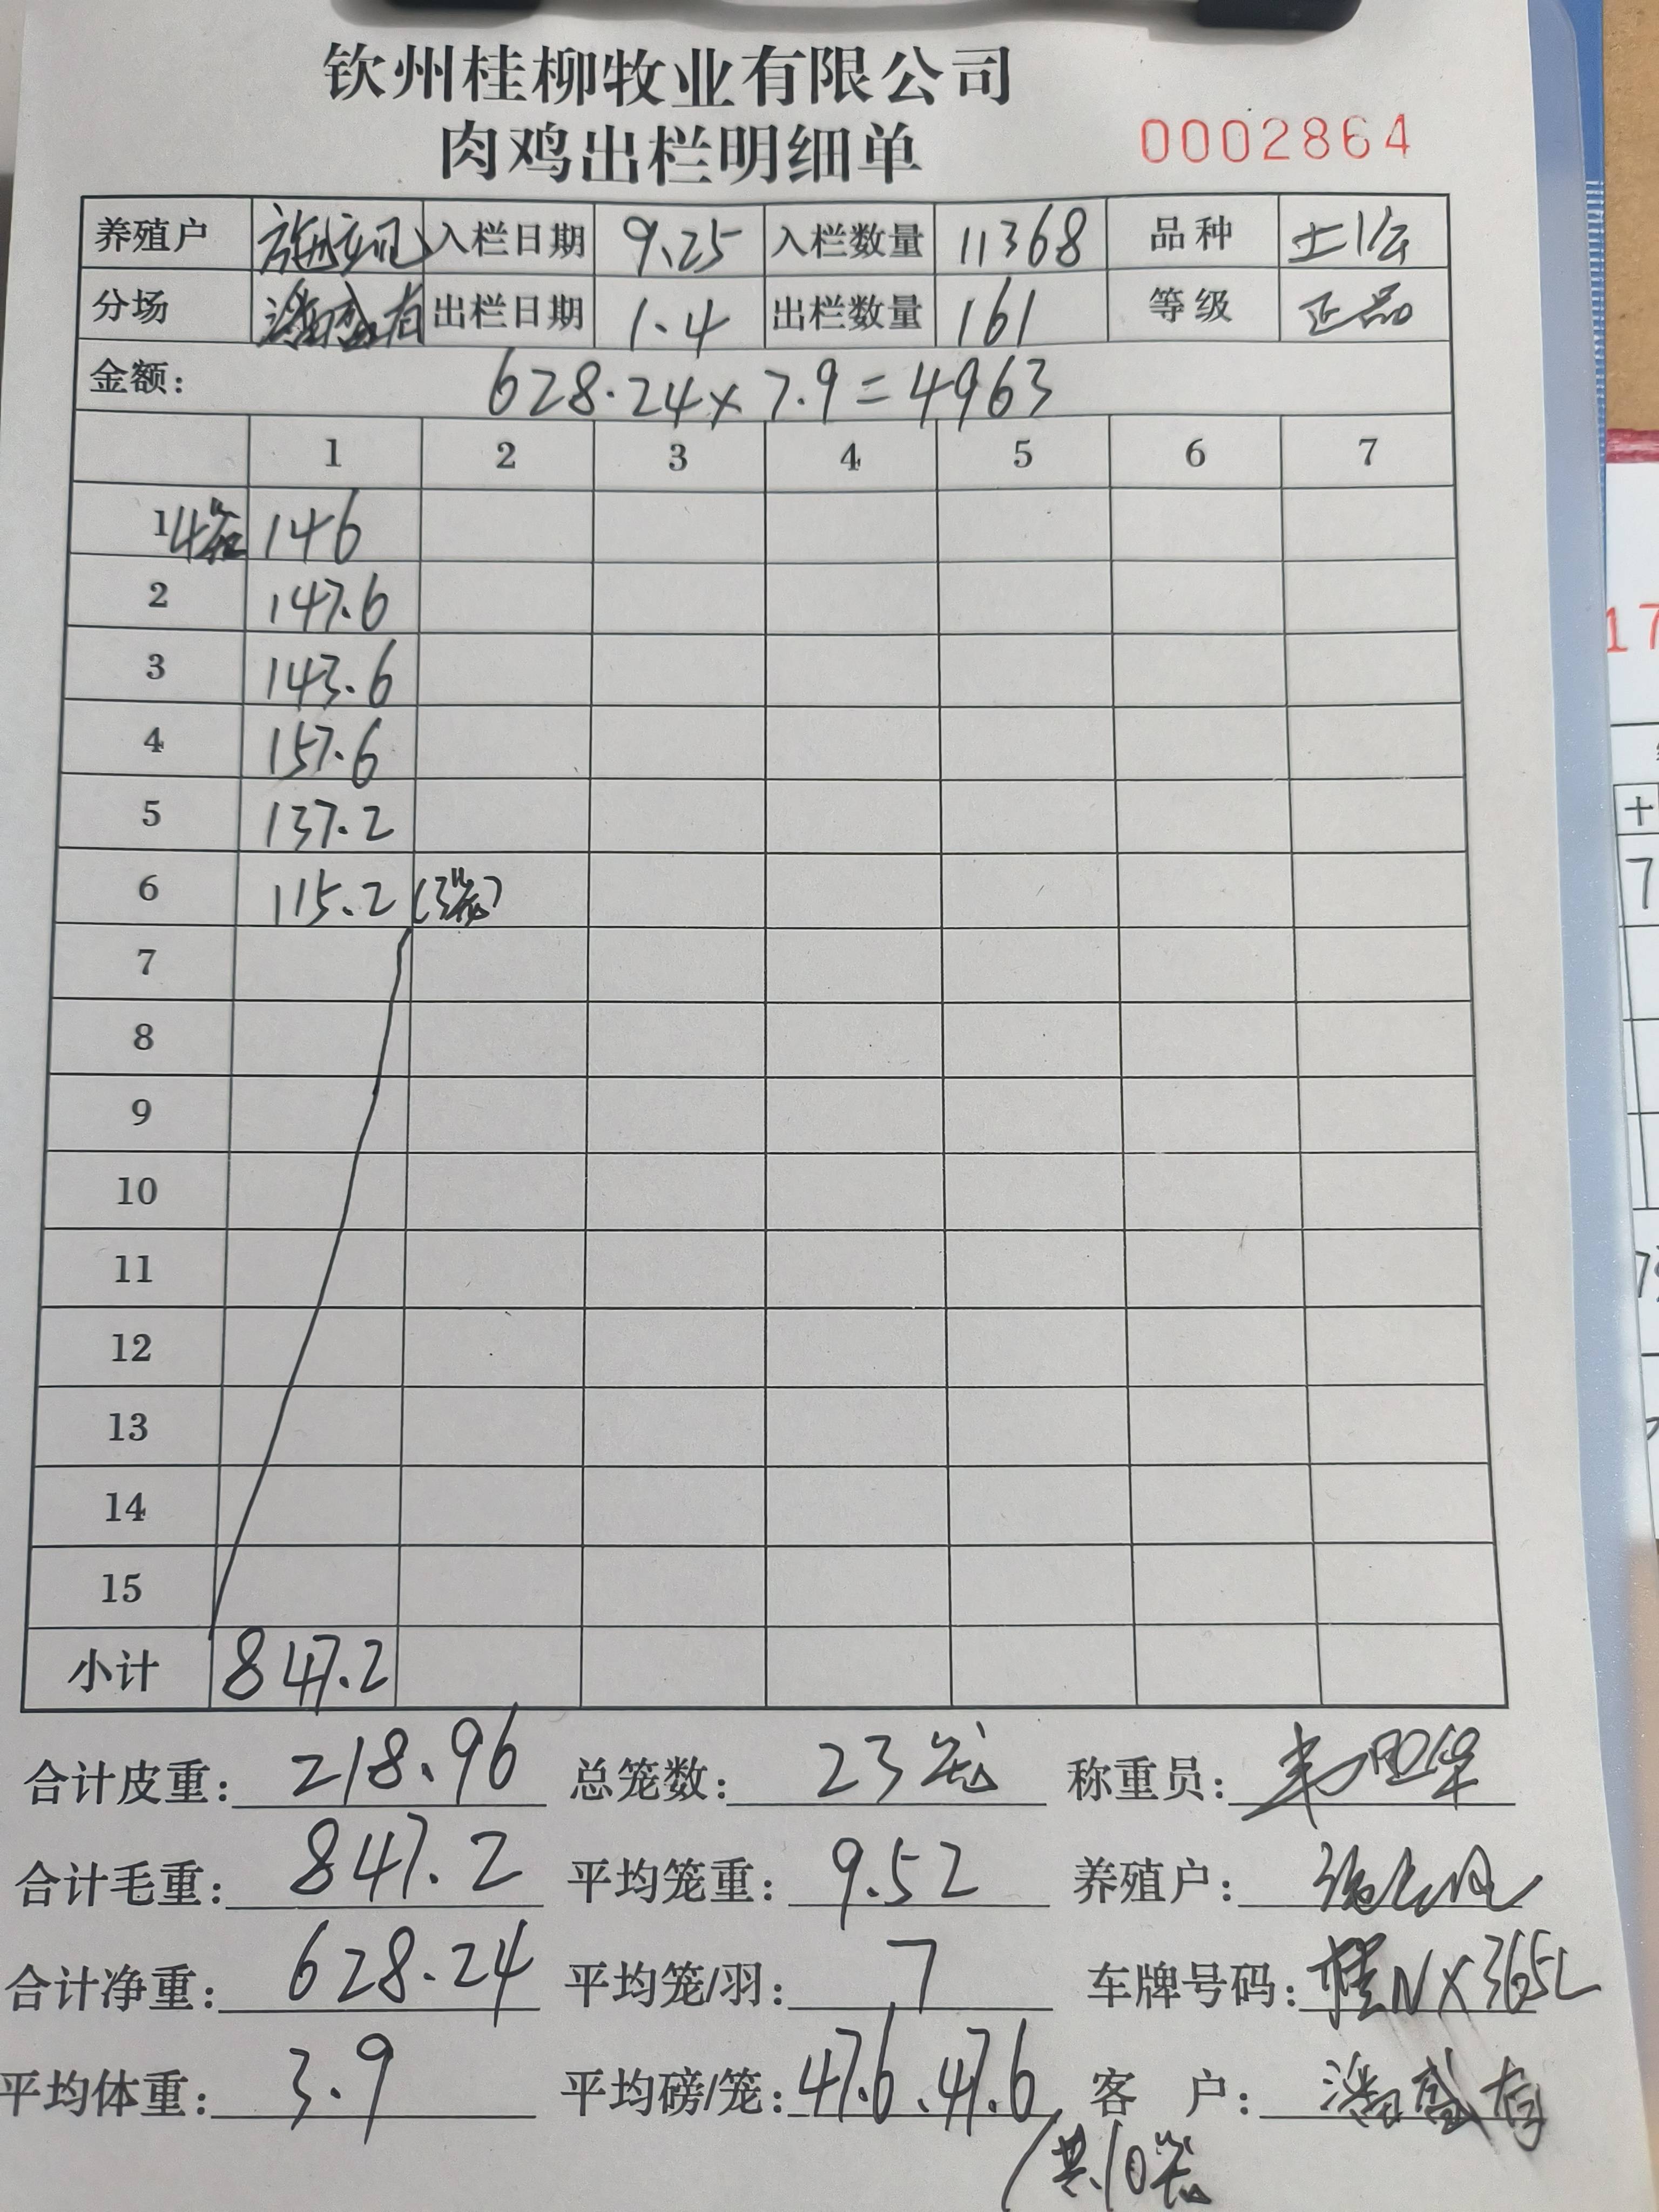 钦州桂柳牧业有限公司
肉鸡出栏明细单 0002864
养殖户 入栏日期 9.25 入栏数量 11368 品种 土1公
分场 潘盛有 出栏日期 1.4 出栏数量 161 等级 正品
金额: 628.24×7.9=4963
1 2 3 4 5 6 7
1 4笼 146
2 147.6
3 143.6
4 157.6
5 137.2
6 115.2 (3笼)
7
8
9
10
11
12
13
14
15
小计 847.2
合计皮重: 218.96 总笼数: 23笼 称重员:
合计毛重: 847.2 平均笼重: 9.52 养殖户:
合计净重: 628.24 平均笼/羽: 7 车牌号码: 桂NX365L
平均体重: 3.9 平均磅/笼: 47.6、47.6 客户: 潘盛有
/共10笼
17
十
7